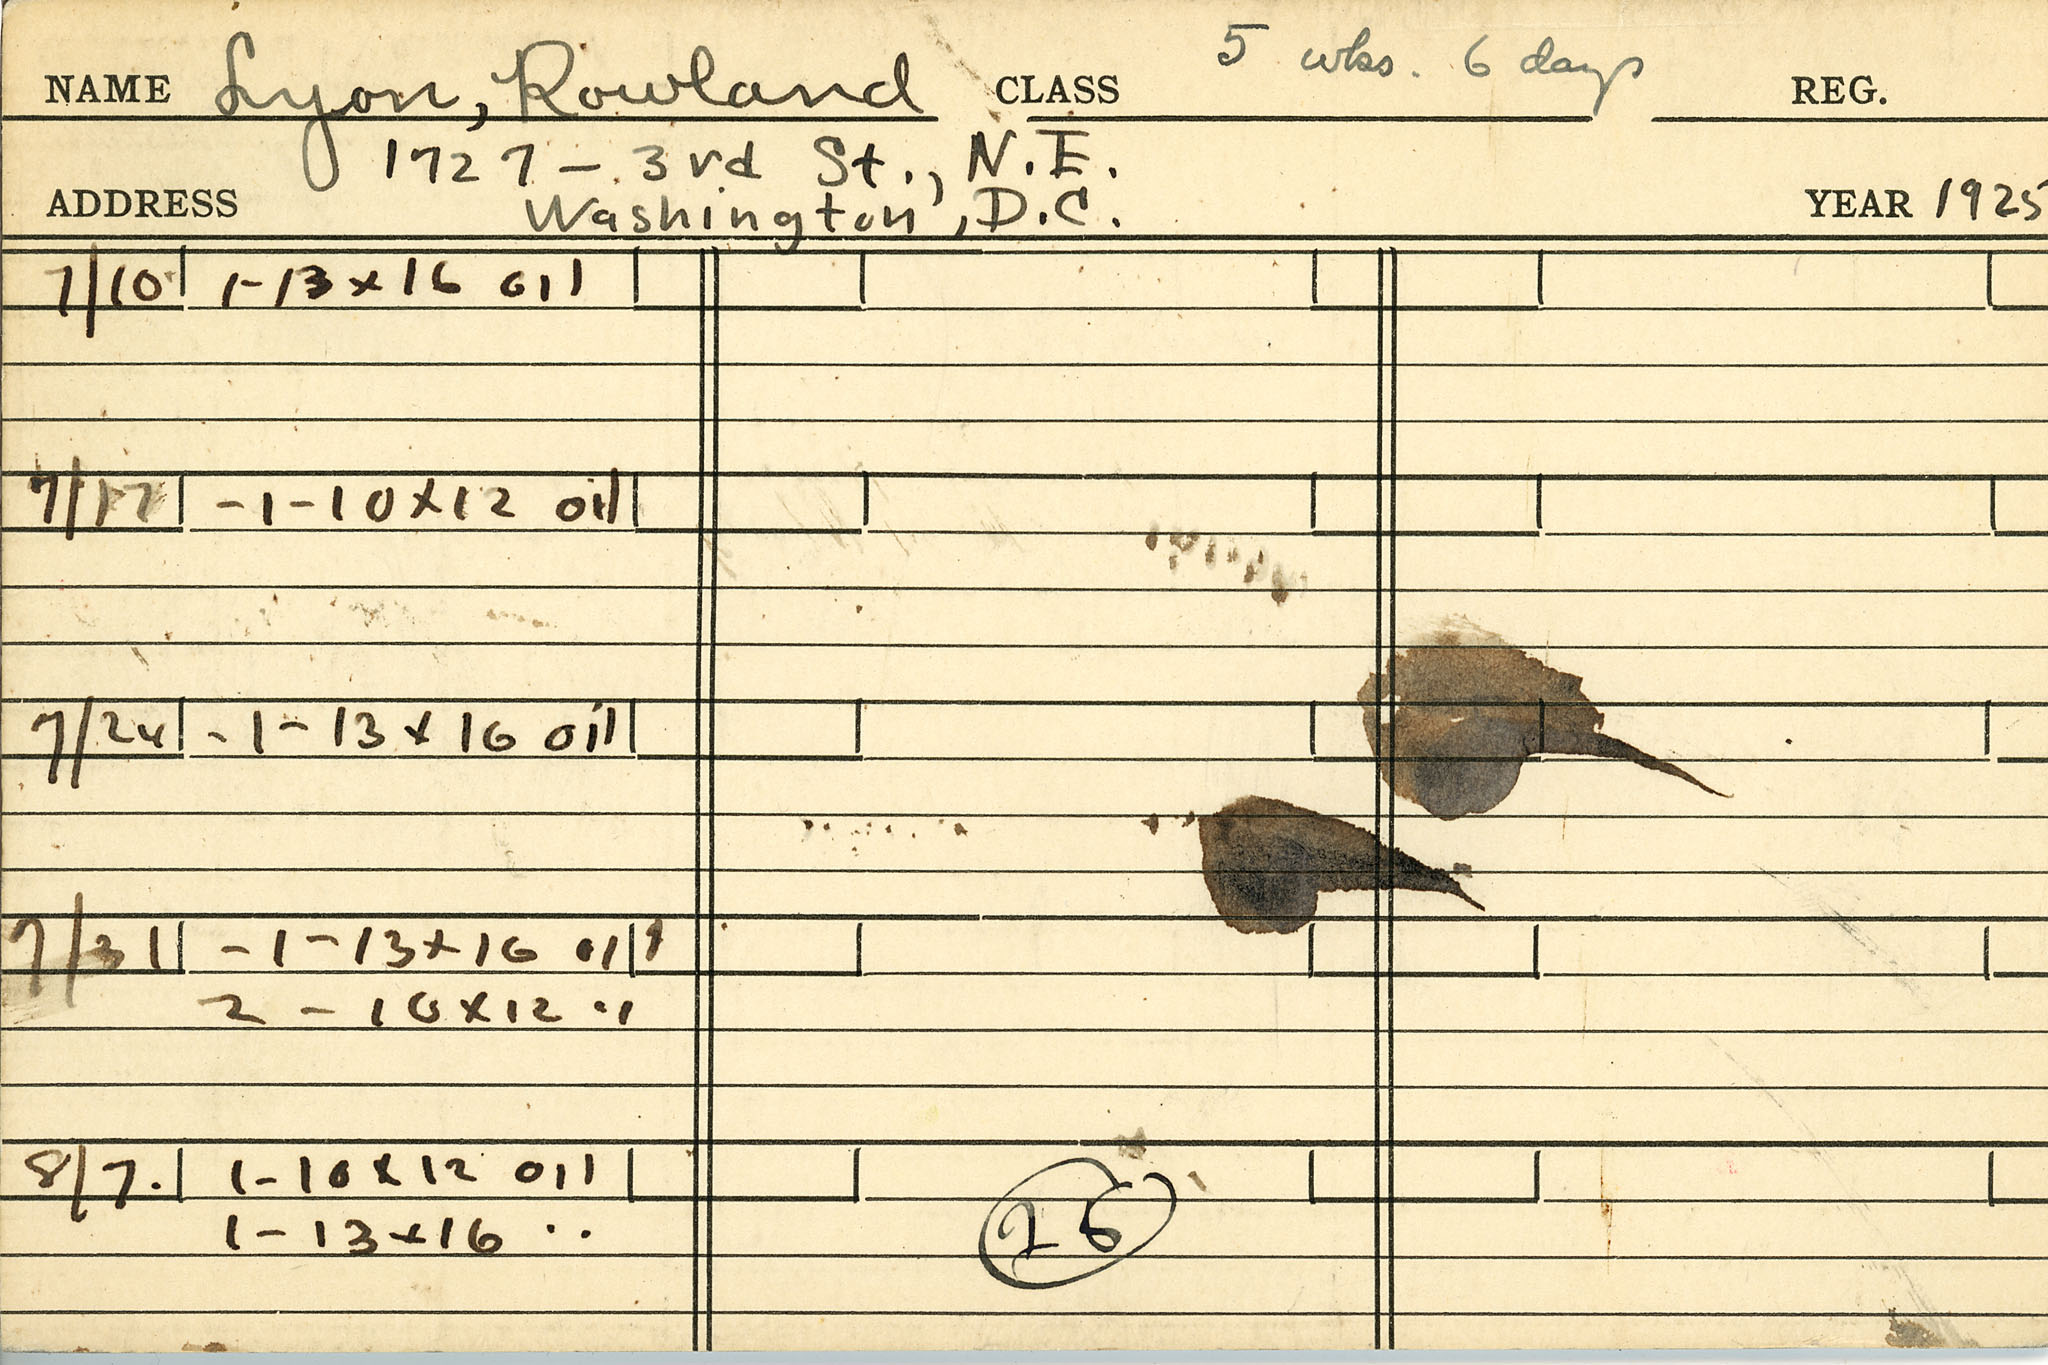 NAME Lyon, Rowland CLASS 5 wks. 6 days REG.
1727 - 3rd St., N.E.
ADDRESS Washington, D.C. YEAR 1925
7/10 1-13x16 oil
7/17 -1-10x12 oil
7/24 -1-13x16 oil
7/31 -1-13x16 oil
2-10x12 "
8/7. 1-10x12 oil
1-13x16 "
25